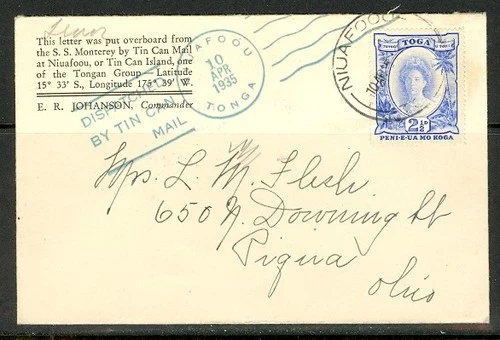 This letter was put overboard from
the S. S. Monterey by Tin Can Mail
at Niuafoou, or Tin Can Island, one
of the Tongan Group—Latitude
15° 33' S., Longitude 175° 39' W.
E. R. JOHANSON, Commander
DISPATCHED
BY TIN CAN
MAIL
NIUAFOOU
10
APR
1935
TONGA
NIUAFOOU
TOGA
2½d
PENI·E·UA MO KOGA
Mrs. L. M. Flesh
650 N. Downing St
Piqua
Ohio